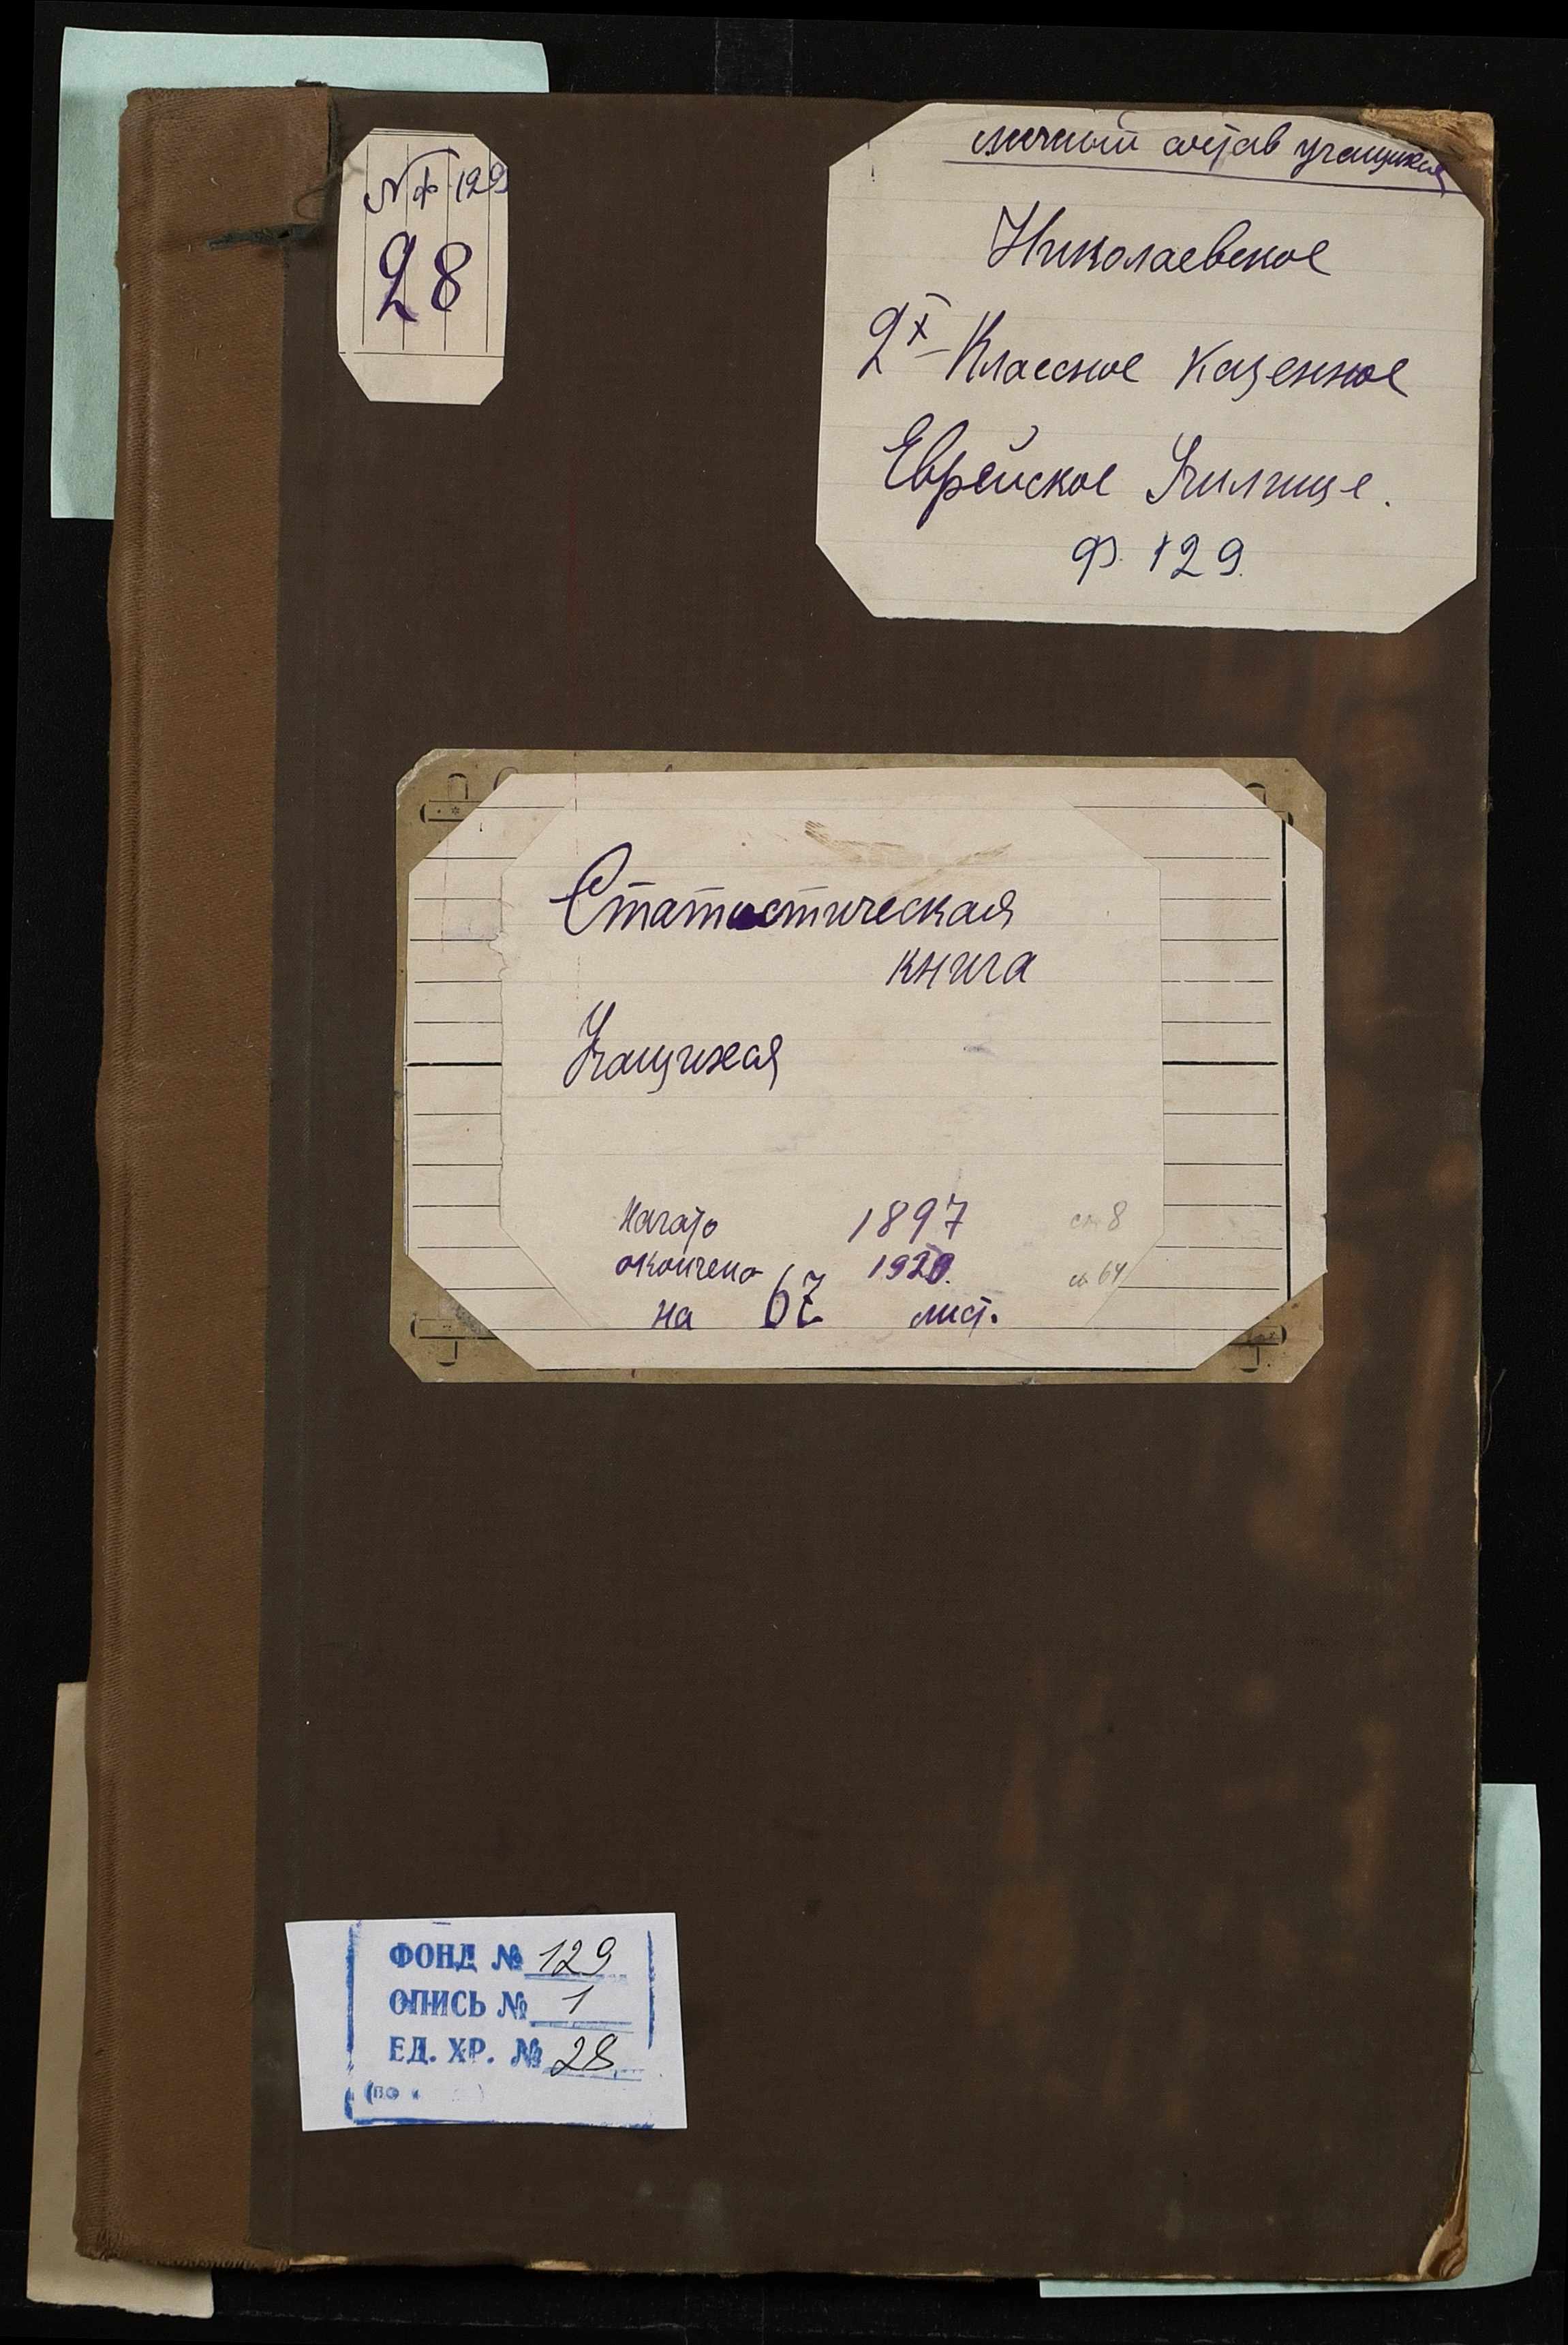 № ф 129
28
личный состав учащихся
Николаевское
2х-Классное Казенное
Еврейское Училище.
Ф. 129.
Статистическая
книга
Учащихся
Начато 1897
окончено 1920.
на 67 лист.
ФОНД № 129
ОПИСЬ № 1
ЕД. ХР. № 28